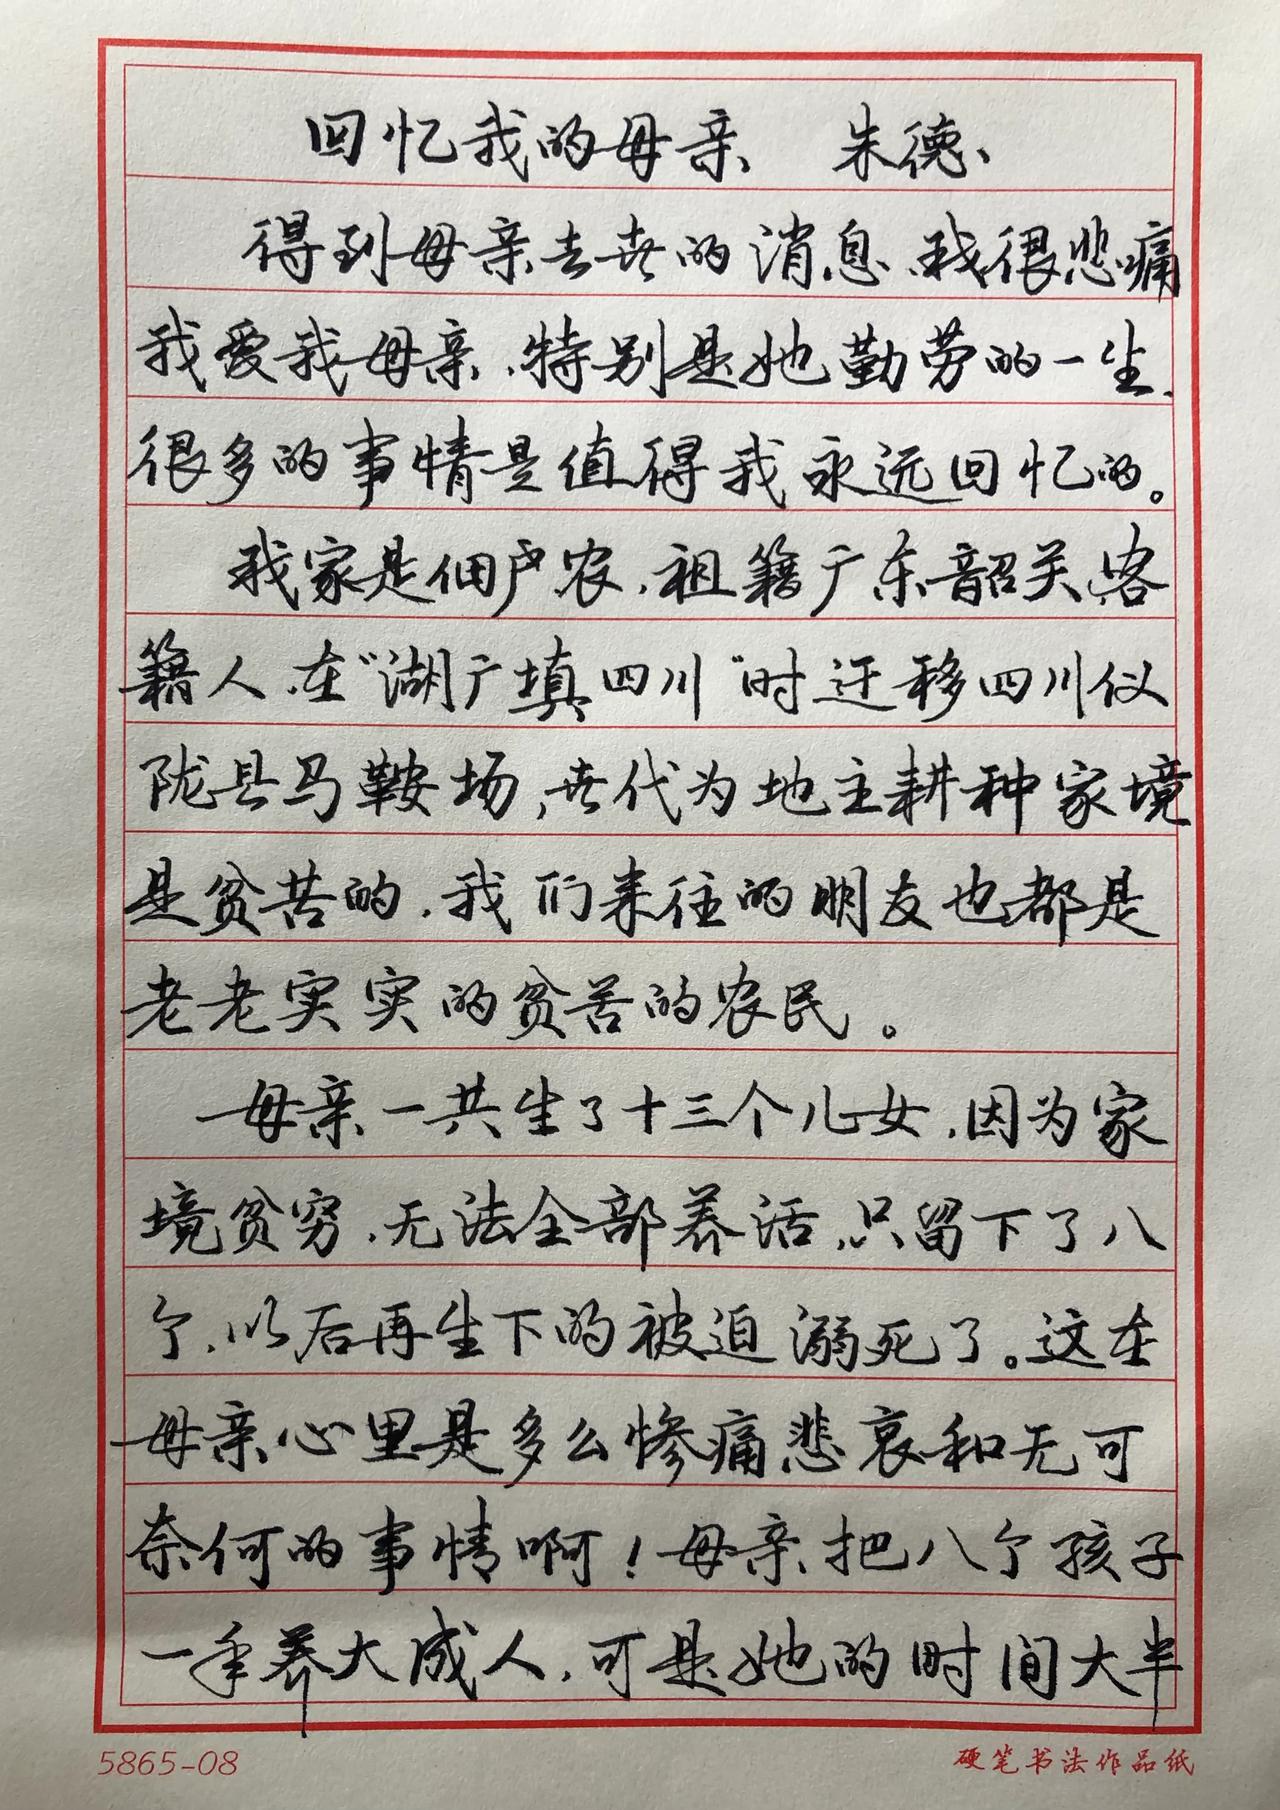 回忆我的母亲、朱德、
得到母亲去世的消息、我很悲痛
我爱我母亲,特别是她勤劳的一生、
很多的事情是值得我永远回忆的。
我家是佃户农,祖籍广东韶关,客
籍人、在“湖广填四川”时迁移四川仪
陇县马鞍场,世代为地主耕种家境
是贫苦的,我们来往的朋友也都是
老老实实的贫苦的农民。
母亲一共生了十三个儿女,因为家
境贫穷,无法全部养活,只留下了八
个,以后再生下的被迫溺死了。这在
母亲心里是多么惨痛悲哀和无可
奈何的事情啊!母亲把八个孩子
一手养大成人,可是她的时间大半
5865-08 硬笔书法作品纸